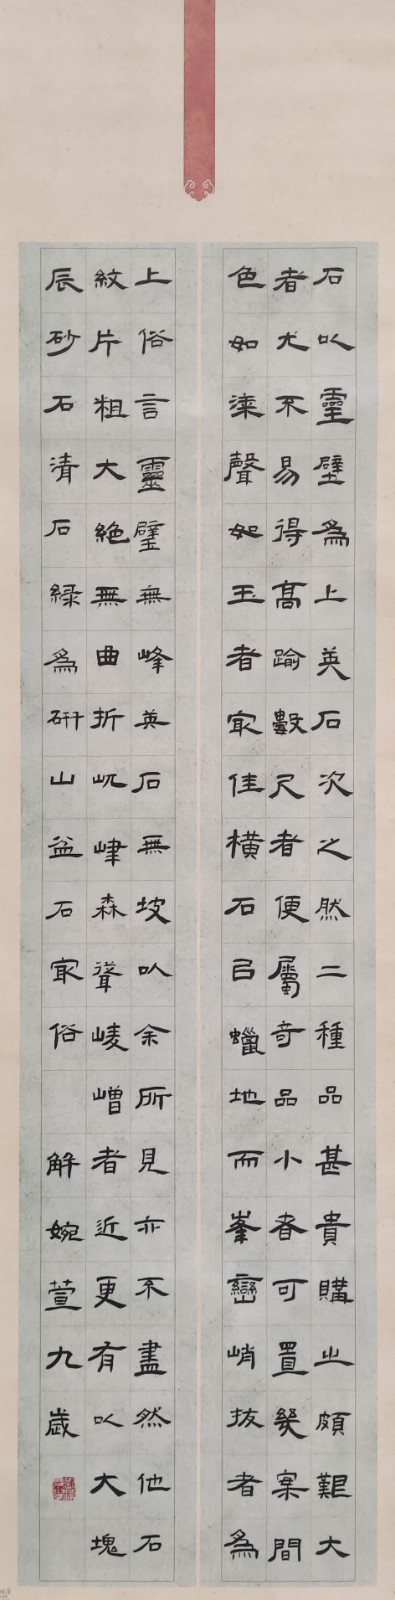 石以靈璧為上英石次之然二種品甚貴購之頗艱大
者尤不易得高踰數尺者便屬奇品小者可置幾案間
色如漆聲如玉者冣佳橫石以蠟地而峯巒峭拔者為
上俗言靈璧無峰英石無坡以余所見亦不盡然他石
紋片粗大絕無曲折屼峍森聳崚嶒者近更有以大塊
辰砂石清石綠為研山盆石冣俗 解婉萱九歲